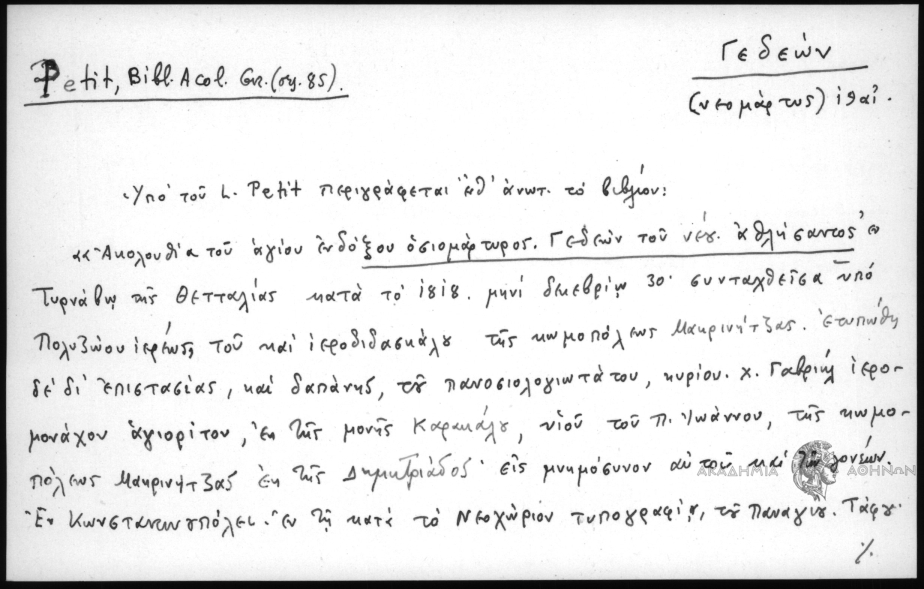 Γεδεών
Petit, Bibl. Acol. Gr. (σημ. 85).
(νεομάρτυς)
Ὑπό τοῦ L. Petit περιγράφεται ἀνωτ. τό βιβλίον:
«Ἀκολουθία τοῦ ἁγίου ἐνδόξου ὁσιομάρτυρος. Γεδεών τοῦ νέου. ἀθλήσαντος ἐν
Τυρνάβῳ τῆς Θετταλίας κατά τό 1818. μηνί δεκεβρίῳ 30· συνταχθεῖσα ὑπό
Πολυζώου ἱερέως, τοῦ καί ἱεροδιδασκάλου τῆς κωμοπόλεως Μακρινήτζας. ἐτυπώθη
δέ δι' ἐπιστασίας, καί δαπάνης, τοῦ πανοσιολογιωτάτου, κυρίου. χ. Γαβριήλ ἱερο-
μονάχου ἁγιορίτου, ἐκ τῆς μονῆς Καρακάλου, υἱοῦ τοῦ π. Ἰωάννου, τῆς κωμο-
πόλεως Μακρινήτζας ἐκ τῆς Δημητριάδος· εἰς μνημόσυνον αὐτοῦ καί τῶν γονέων.
Ἐν Κωνσταντινουπόλει. ἐν τῇ κατά τό Νεοχώριον τυπογραφίᾳ, τοῦ Παναγίου. Τάφου.
%.
ΑΚΑΔΗΜΙΑ ΑΘΗΝΩΝ